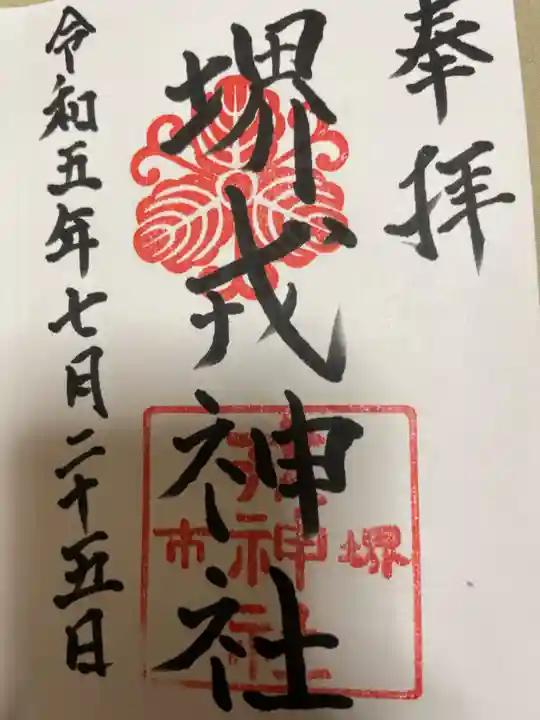 奉拝
堺戎神社
令和五年七月二十五日
堺
神社
市